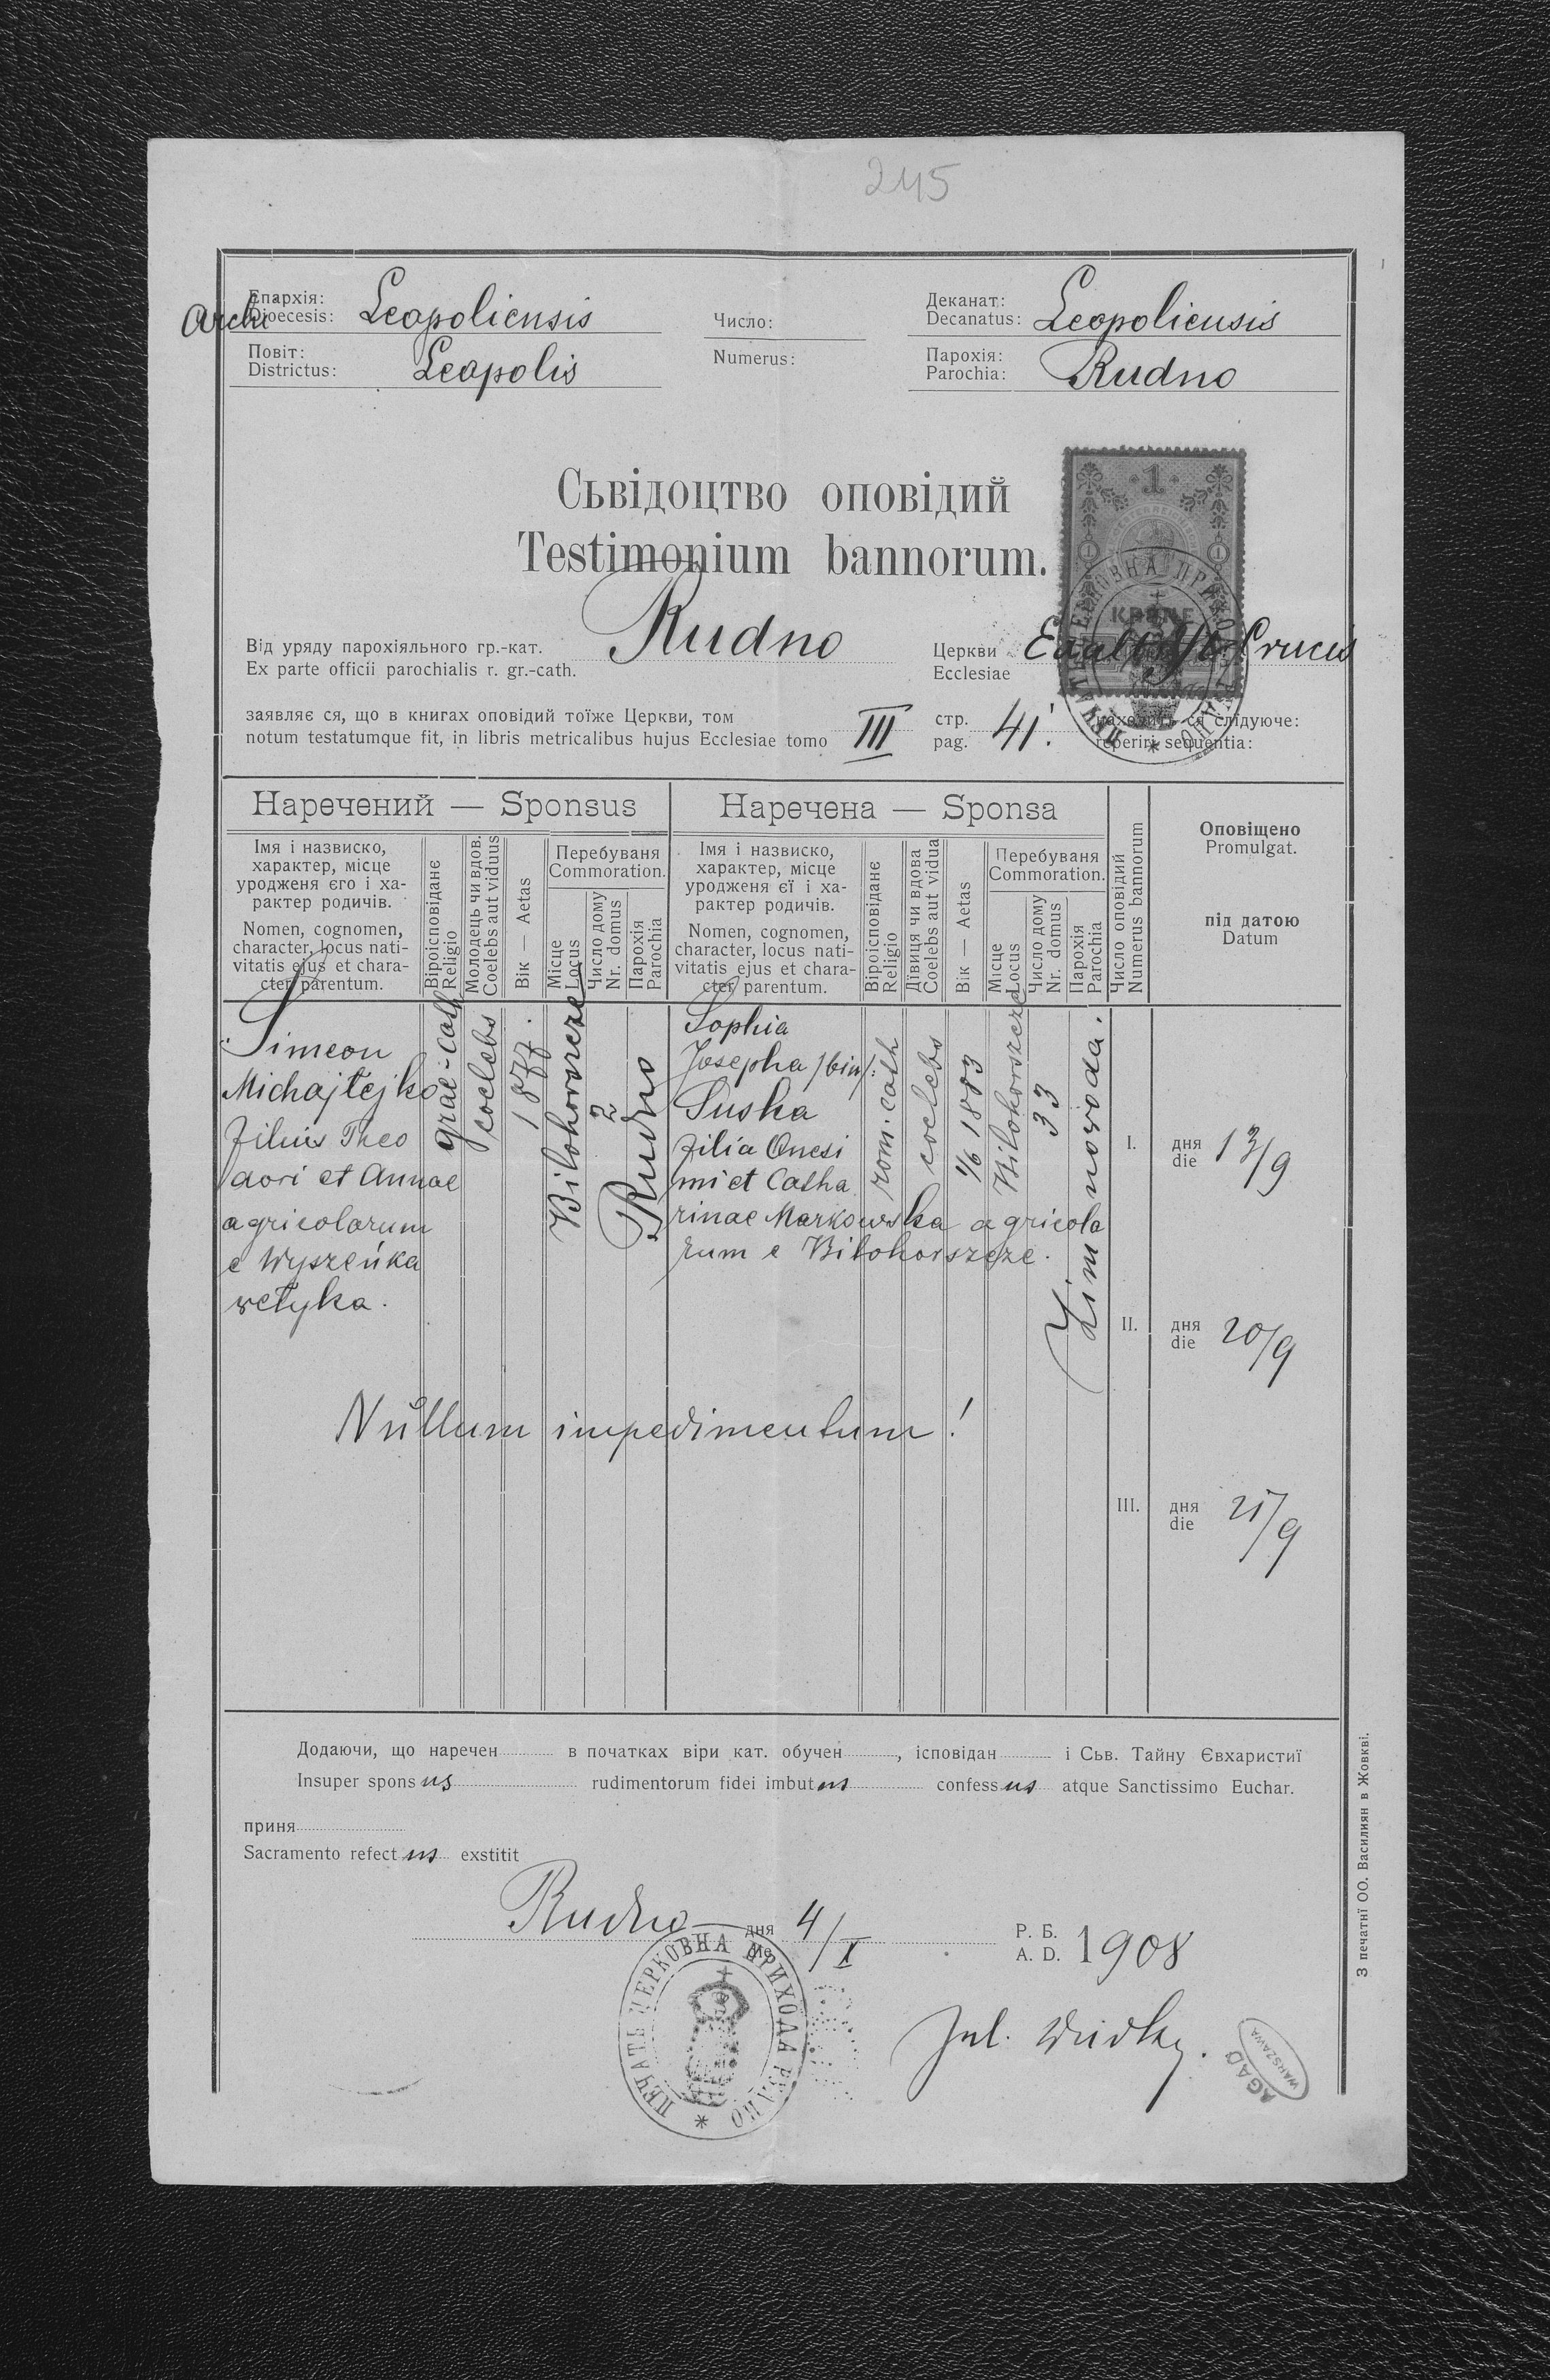 245
Епархія:
Archi Dioecesis: Leopoliensis
Число:
Деканат:
Decanatus: Leopoliensis
Повіт:
Districtus: Leopolis
Numerus:
Парохія:
Parochia: Rudno
Сьвідоцтво оповідий
Testimonium bannorum.
Від уряду парохіяльного гр.-кат.
Ex parte officii parochialis r. gr.-cath. Rudno
Церкви
Ecclesiae Crucis
заявляє ся, що в книгах оповідий тоїже Церкви, том
notum testatumque fit, in libris metricalibus hujus Ecclesiae tomo III
стр.
pag. 41.
находить ся слідуюче:
reperiri sequentia:
1
KRONE
ПЕЧАТЬ ЦЕРКОВНА ПРИХОДА РУДНО
Наречений — Sponsus
Наречена — Sponsa
Імя і назвиско,
характер, місце
уродженя єго і ха-
рактер родичів.
Nomen, cognomen,
character, locus nati-
vitatis ejus et chara-
cter parentum.
Віроісповіданє
Religio
Молодець чи вдов.
Coelebs aut viduus
Вік — Aetas
Перебуваня
Commoration.
Місце
Locus
Число дому
Nr. domus
Парохія
Parochia
Імя і назвиско,
характер, місце
уродженя єї і ха-
рактер родичів.
Nomen, cognomen,
character, locus nati-
vitatis ejus et chara-
cter parentum.
Віроісповіданє
Religio
Дївиця чи вдова
Coelebs aut vidua
Вік — Aetas
Перебуваня
Commoration.
Місце
Locus
Число дому
Nr. domus
Парохія
Parochia
Число оповідий
Numerus bannorum
Оповіщено
Promulgat.
під датою
Datum
Simeon
Michajłejko
filius Theo
dori et Annae
agricolarum
e Wyszeńka
wełyka.
grae-cath
coelebs
1877.
Biłohorszcze
2
Rudno
Sophia
Josepha /bin/:
Suska
filia Onesi
mi et Catha
rinae Markowska agricola
rum e Biłohorszcze.
rom. cath
coelebs
1/6 1883
Biłohorszcze
33
Zimnowoda.
I. дня
die 13/9
II. дня
die 20/9
III. дня
die 21/9
Nullum impedimentum!
Додаючи, що наречен в початках віри кат. обучен, ісповідан і Сьв. Тайну Євхаристиї
Insuper spons us rudimentorum fidei imbut us confess us atque Sanctissimo Euchar.
приня
Sacramento refect us exstitit
Rudno дня
die 4/X
Р. Б.
A. D. 1908
ПЕЧАТЬ ЦЕРКОВНА ПРИХОДА РУДНО
Jul.
AGAD
WARSZAWA
З печатнї ОО. Василиян в Жовкві.